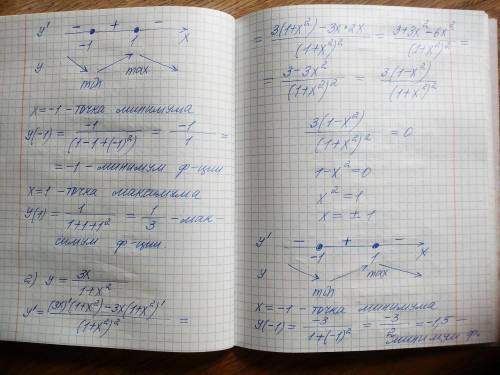 y' − + −
-1 1 x
y min max
x=-1 - точка минимума
y(-1) = -1/(1-1+(-1)²) = -1/1 =
= -1 - минимум ф-ции
x=1 - точка максимума
y(1) = 1/(1+1+1²) = 1/3 - мак-
симум ф-ции.
2) y = 3x/(1+x²)
y' = ((3x)'(1+x²) - 3x(1+x²)')/(1+x²)² =
= (3(1+x²) - 3x·2x)/(1+x²)² = (3+3x²-6x²)/(1+x²)² =
= (3-3x²)/(1+x²)² = 3(1-x²)/(1+x²)²
3(1-x²)/(1+x²)² = 0
1-x²=0
x²=1
x=±1
y' − + −
-1 1 x
y min max
x=-1 - точка минимума
y(-1) = -3/(1+(-1)²) = -3/2 = -1,5 -
минимум ф.